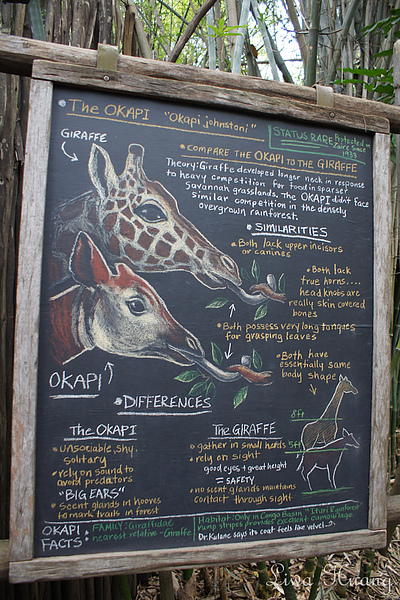 The OKAPI "Okapi johnstoni"
STATUS RARE Protected in
Zaire Since
1933
GIRAFFE
• COMPARE THE OKAPI TO THE GIRAFFE
Theory: Giraffe developed longer neck in response
to heavy competition for food in sparser
Savannah grasslands. The OKAPI didn't face
similar competition in the densely
overgrown rainforest.
• SIMILARITIES
• Both lack upper incisors
or canines
• Both lack
true horns....
head knobs are
really skin covered
bones
• Both possess very long tongues
for grasping leaves
• Both, have
essentially same
body shape
OKAPI
8ft
5ft
• DIFFERENCES
The OKAPI
• unsociable, shy,
solitary
• rely on sound to
avoid predators
"BIG EARS"
• Scent glands in hooves
to mark trails in forest
The GIRAFFE
• gather in small herds
• rely on sight
good eyes + great height
= SAFETY
• no scent glands maintains
contact through sight
OKAPI
FACTS:
FAMILY: Giraffidae
nearest relative - Giraffe
Habitat: Only in Congo Basin "Ituri Rainforest
rump stripes provides excellent camouflage
Dr. Kulane says its coat feels like velvet...
Liwa Huang